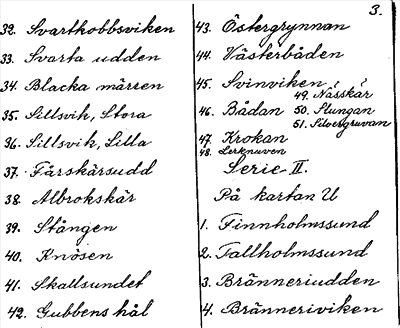 3.
32. Svartkobbsviken
33. Svarta udden
34. Blacka märren
35. Sillsvik, Stora
36. Sillsvik, Lilla
37. Färskärsudd
38. Albrokskär
39. Stången
40. Knösen
41. Skallsundet
42. Gubbens hål
43. Östergrynnan
44. Västerbåden
45. Svinviken
49. Nässkär
46. Bådan 50. Slungan
51. Silvergruvan
47. Krokan
48. Lerknuven
Serie II.
På kartan U
1. Finnholmssund
2. Tallholmssund
3. Bränneriudden
4. Bränneriviken